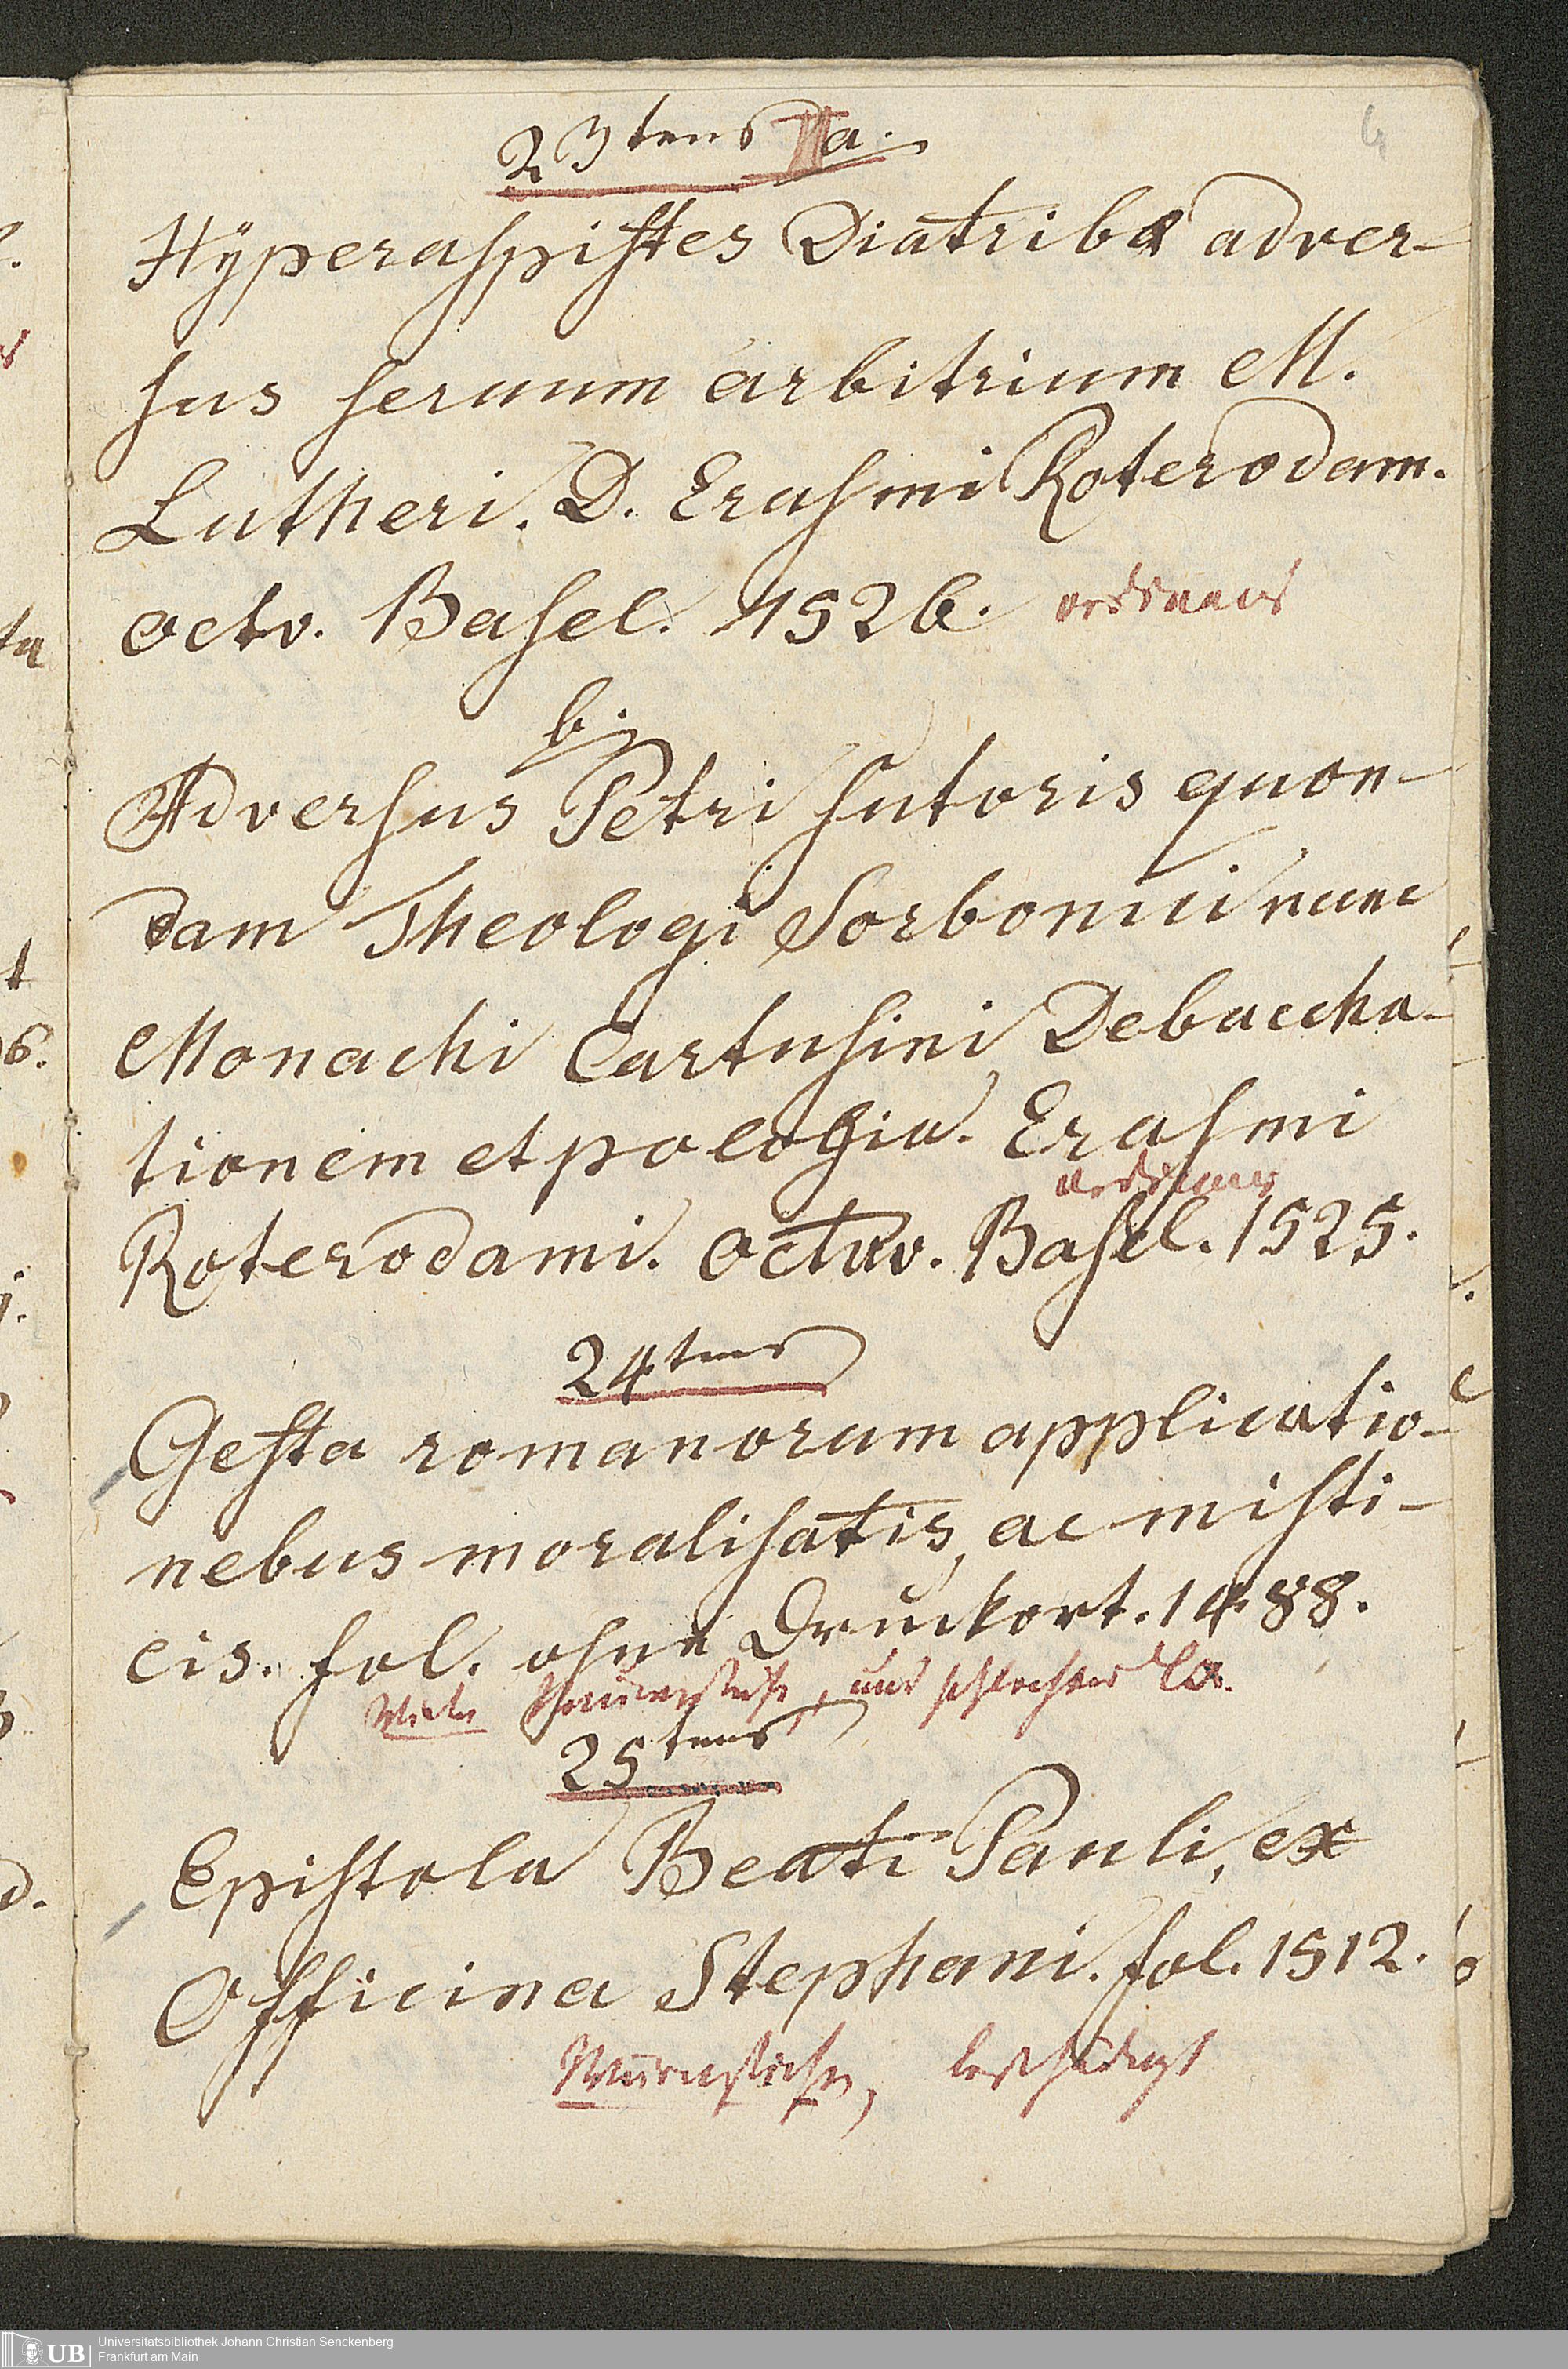 23tens II a.
Hÿperaspistes Diatribæ adver-
sus seruum arbitrium M.
Lutheri. D. Erasmi Roterodam.
octv. Basel. 1526. ordinair
b.
Adversus Petri sutoris quon-
dam Theologi Sorbonici nunc
Monachi Cartusini, Debaccha-
tionem et pologia. Erasmi
ordinair
Roterodami. octav. Basel. 1525.
24tens
Gesta romanorum applicatio-
nebus moralisatis, ac misti-
cis. fol. ohne Druckort. 1488.
Viele Wurmstiche, und schlechter
25tens
Epistola Beati Pauli, ex
Officina Stephani. fol. 1512.
Wurmstiche, beschädigt
UB
Universitätsbibliothek Johann Christian Senckenberg
Frankfurt am Main